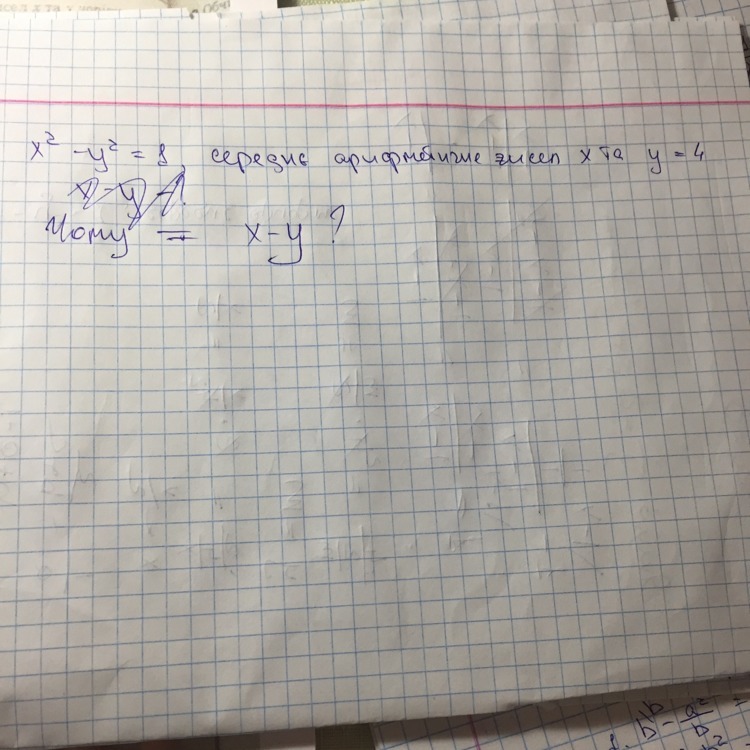 x² - y² = 8, середнє арифметичне чисел x та y = 4
Чому = x - y ?
b
a²
b
b